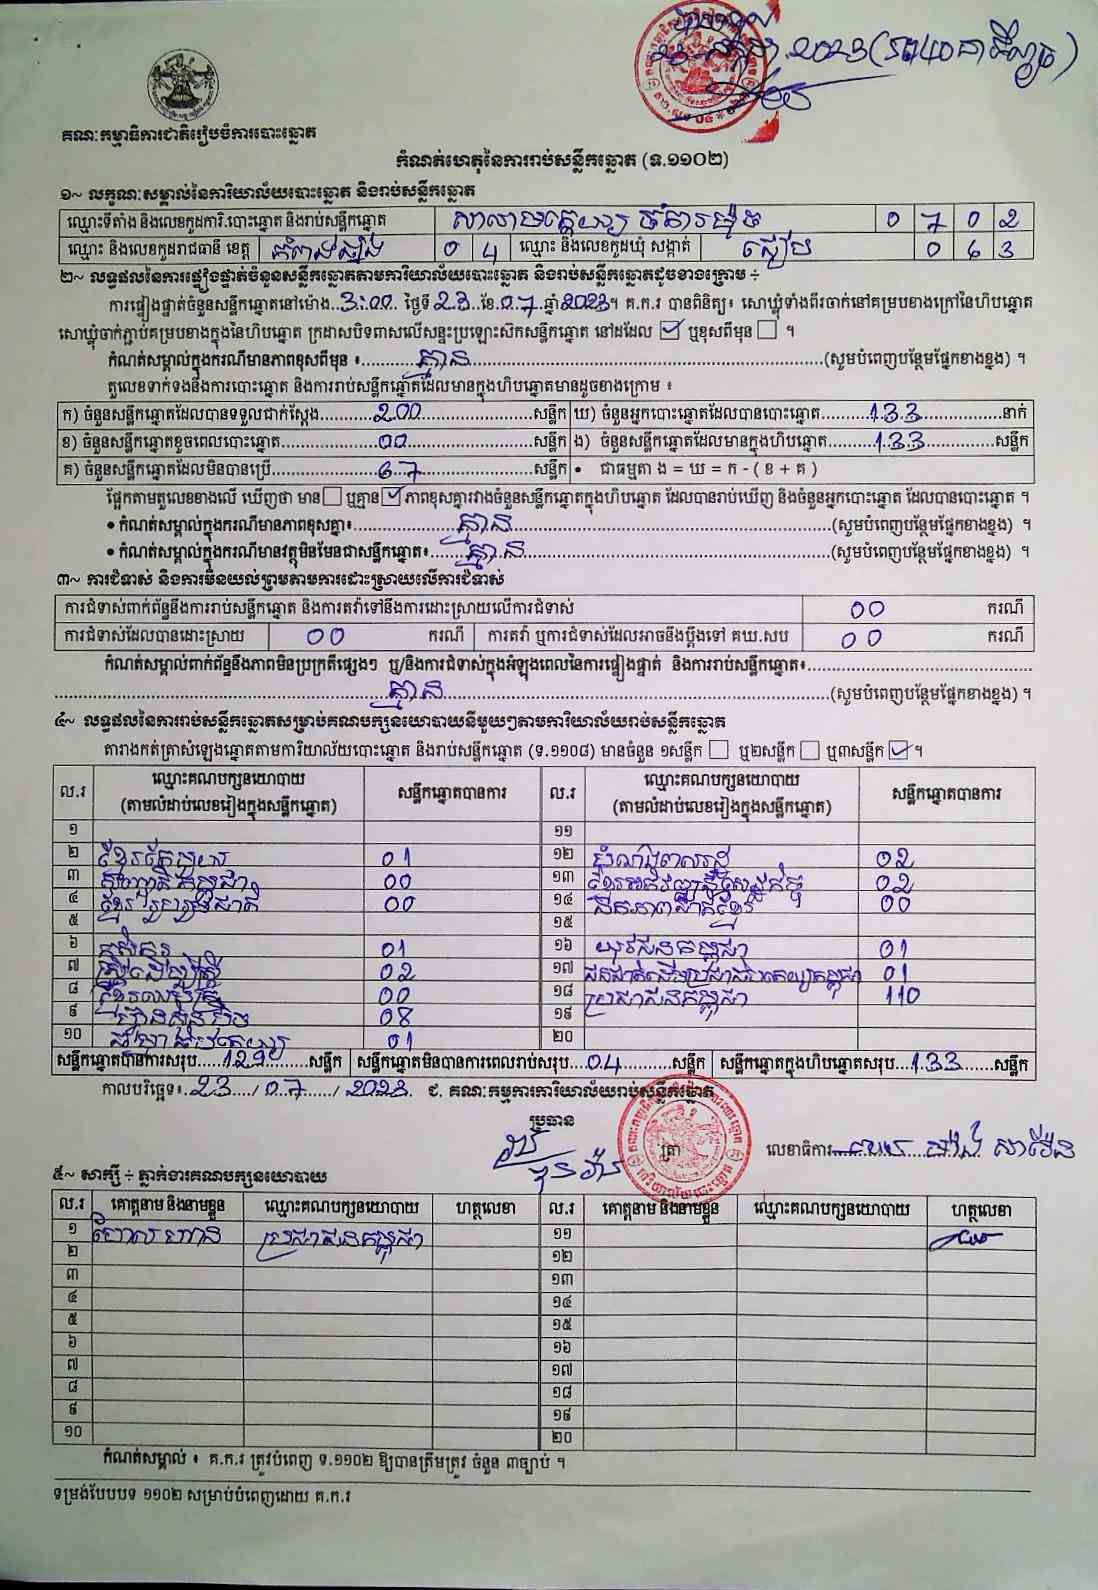 ២៣ កក្កដា 2023
គណៈកម្មាធិការជាតិរៀបចំការបោះឆ្នោត
កំណត់ហេតុនៃការរាប់សន្លឹកឆ្នោត (ទ.១១០២)
១~ លក្ខណៈសម្គាល់នៃការិយាល័យបោះឆ្នោត និងរាប់សន្លឹកឆ្នោត
ឈ្មោះទីតាំង និងលេខកូដការិ.បោះឆ្នោត និងរាប់សន្លឹកឆ្នោត សាលាមត្តេយ្យ 0 7 0 2
ឈ្មោះ និងលេខកូដរាជធានី ខេត្ត កំពង់ឆ្នាំង 0 4 ឈ្មោះ និងលេខកូដឃុំ សង្កាត់ 0 6 3
២~ លទ្ធផលនៃការផ្ទៀងផ្ទាត់ចំនួនសន្លឹកឆ្នោតតាមការិយាល័យបោះឆ្នោត និងរាប់សន្លឹកឆ្នោតដូចខាងក្រោម ÷
ការផ្ទៀងផ្ទាត់ចំនួនសន្លឹកឆ្នោតនៅម៉ោង 3:00 ថ្ងៃទី 23 ខែ 0.7 ឆ្នាំ 2023 ។ គ.ក.រ បានពិនិត្យ៖ សោឃ្លុំទាំងពីរចាក់នៅគម្របខាងក្រៅនៃហិបឆ្នោត
សោឃ្លុំចាក់ភ្ជាប់គម្របខាងក្នុងនៃហិបឆ្នោត ក្រដាសបិទពាសលើសន្ទះប្រឡោះស៊កសន្លឹកឆ្នោត នៅដដែល ☑ ឬខុសពីមុន ☐ ។
កំណត់សម្គាល់ក្នុងករណីមានភាពខុសពីមុន ៖ គ្មាន (សូមបំពេញបន្ថែមផ្នែកខាងខ្នង) ។
តួលេខទាក់ទងនឹងការបោះឆ្នោត និងការរាប់សន្លឹកឆ្នោតដែលមានក្នុងហិបឆ្នោតមានដូចខាងក្រោម ៖
ក) ចំនួនសន្លឹកឆ្នោតដែលបានទទួលជាក់ស្តែង 200 សន្លឹក ឃ) ចំនួនអ្នកបោះឆ្នោតដែលបានបោះឆ្នោត 133 នាក់
ខ) ចំនួនសន្លឹកឆ្នោតខូចពេលបោះឆ្នោត 00 សន្លឹក ង) ចំនួនសន្លឹកឆ្នោតដែលមានក្នុងហិបឆ្នោត 133 សន្លឹក
គ) ចំនួនសន្លឹកឆ្នោតដែលមិនបានប្រើ 67 សន្លឹក • ជាធម្មតា ង = ឃ = ក - ( ខ + គ )
ផ្អែកតាមតួលេខខាងលើ ឃើញថា មាន ☐ ឬគ្មាន ☑ ភាពខុសគ្នារវាងចំនួនសន្លឹកឆ្នោតក្នុងហិបឆ្នោត ដែលបានរាប់ឃើញ និងចំនួនអ្នកបោះឆ្នោត ដែលបានបោះឆ្នោត ។
• កំណត់សម្គាល់ក្នុងករណីមានភាពខុសគ្នា៖ គ្មាន (សូមបំពេញបន្ថែមផ្នែកខាងខ្នង) ។
• កំណត់សម្គាល់ក្នុងករណីមានវត្ថុមិនមែនជាសន្លឹកឆ្នោត៖ គ្មាន (សូមបំពេញបន្ថែមផ្នែកខាងខ្នង) ។
៣~ ការជំទាស់ និងការមិនយល់ព្រមតាមការដោះស្រាយលើការជំទាស់
ការជំទាស់ពាក់ព័ន្ធនឹងការរាប់សន្លឹកឆ្នោត និងការតវ៉ាទៅនឹងការដោះស្រាយលើការជំទាស់ 00 ករណី
ការជំទាស់ដែលបានដោះស្រាយ 00 ករណី ការតវ៉ា ឬការជំទាស់ដែលអាចនឹងប្តឹងទៅ គឃ.សប 00 ករណី
កំណត់សម្គាល់ពាក់ព័ន្ធនឹងភាពមិនប្រក្រតីផ្សេងៗ ឬ/និងការជំទាស់ក្នុងអំឡុងពេលនៃការផ្ទៀងផ្ទាត់ និងការរាប់សន្លឹកឆ្នោត៖
គ្មាន (សូមបំពេញបន្ថែមផ្នែកខាងខ្នង) ។
៤~ លទ្ធផលនៃការរាប់សន្លឹកឆ្នោតសម្រាប់គណបក្សនយោបាយនីមួយៗតាមការិយាល័យរាប់សន្លឹកឆ្នោត
តារាងកត់ត្រាសំឡេងឆ្នោតតាមការិយាល័យបោះឆ្នោត និងរាប់សន្លឹកឆ្នោត (ទ.១១០៨) មានចំនួន ១សន្លឹក ☐ ឬ២សន្លឹក ☐ ឬ៣សន្លឹក ☑ ។
ល.រ ឈ្មោះគណបក្សនយោបាយ (តាមលំដាប់លេខរៀងក្នុងសន្លឹកឆ្នោត) សន្លឹកឆ្នោតបានការ ល.រ ឈ្មោះគណបក្សនយោបាយ (តាមលំដាប់លេខរៀងក្នុងសន្លឹកឆ្នោត) សន្លឹកឆ្នោតបានការ
១ ១១
២ 01 ១២ 02
៣ កម្ពុជា 00 ១៣ 02
៤ ខ្មែររួបរួមជាតិ 00 ១៤ ឯកភាពជាតិខ្មែរ 00
៥ ១៥
៦ កសិករ 01 ១៦ យុវជនកម្ពុជា 01
៧ ស្ត្រីដើម្បីស្ត្រី 02 ១៧ 01
៨ 00 ១៨ ប្រជាជនកម្ពុជា 110
៩ ហ្វ៊ុនស៊ិនប៉ិច 08 ១៩
១០ ធម្មាធិបតេយ្យ 01 ២០
សន្លឹកឆ្នោតបានការសរុប 129 សន្លឹក សន្លឹកឆ្នោតមិនបានការពេលរាប់សរុប 04 សន្លឹក សន្លឹកឆ្នោតក្នុងហិបឆ្នោតសរុប 133 សន្លឹក
កាលបរិច្ឆេទ៖ 23 / 07 / 2023. ជ. គណៈកម្មការការិយាល័យរាប់សន្លឹកឆ្នោត
ប្រធាន
ត្រា លេខាធិការ
៥~ សាក្សី ÷ ភ្នាក់ងារគណបក្សនយោបាយ
ល.រ គោត្តនាម និងនាមខ្លួន ឈ្មោះគណបក្សនយោបាយ ហត្ថលេខា ល.រ គោត្តនាម និងនាមខ្លួន ឈ្មោះគណបក្សនយោបាយ ហត្ថលេខា
១ ប្រជាជនកម្ពុជា ១១
២ ១២
៣ ១៣
៤ ១៤
៥ ១៥
៦ ១៦
៧ ១៧
៨ ១៨
៩ ១៩
១០ ២០
កំណត់សម្គាល់ ៖ គ.ក.រ ត្រូវបំពេញ ទ.១១០២ ឱ្យបានត្រឹមត្រូវ ចំនួន ៣ច្បាប់ ។
ទម្រង់បែបបទ ១១០២ សម្រាប់បំពេញដោយ គ.ក.រ